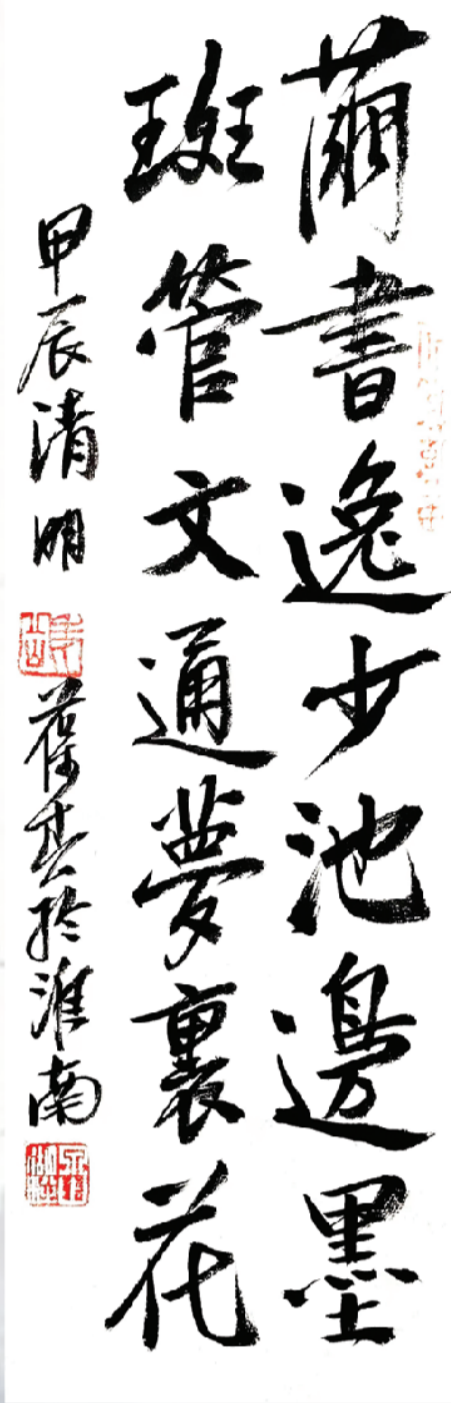 繭書逸少池邊墨
斑管文通夢裏花
甲辰清明
葆春於淮南